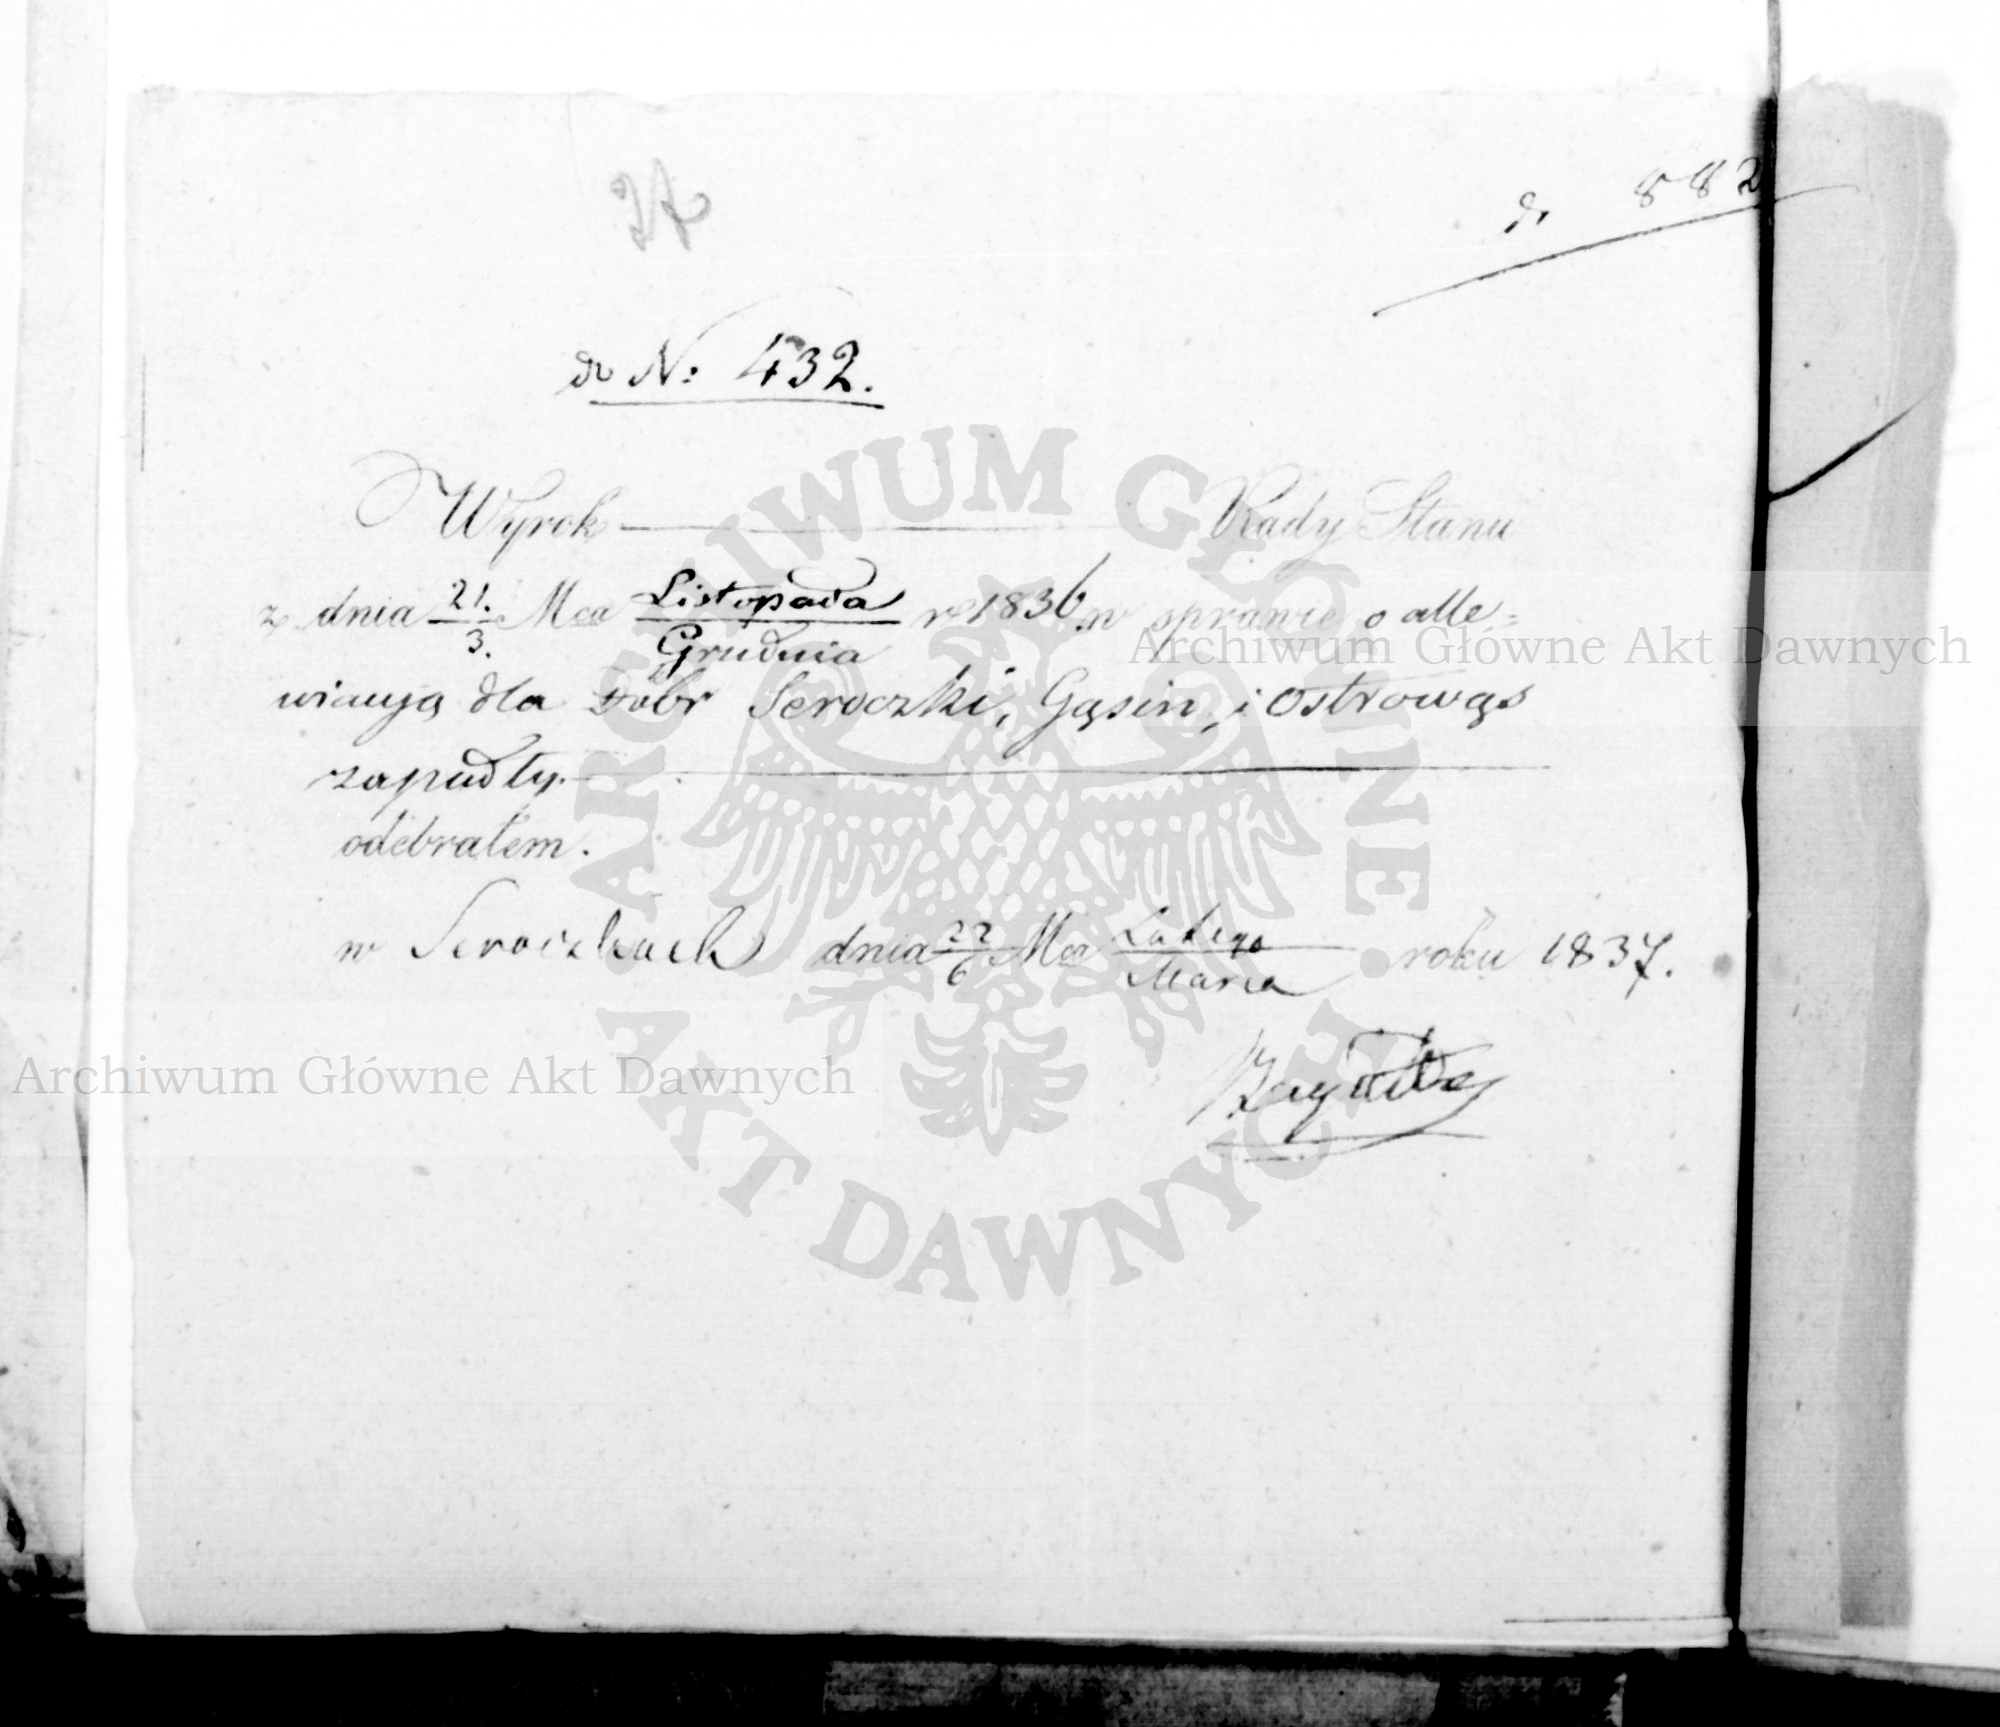 do 882
do N: 432.
Wyrok Rady Stanu
z dnia 21./3. Mca Listopada/Grudnia r. 1836 w sprawie o alle=
wiacyą dla Dóbr Seroczki, Gąsin, i Ostrowąs
zapadły.
odebrałem.
w Seroczkach dnia 22/6 Mca Lutego/Marca roku 1837.
ARCHIWUM GŁÓWNE AKT DAWNYCH
Archiwum Główne Akt Dawnych
Archiwum Główne Akt Dawnych